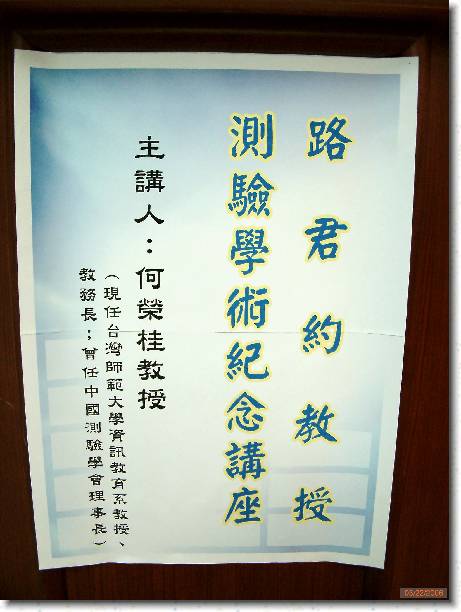 路君約教授
測驗學術紀念講座
主講人：何榮桂教授
（現任台灣師範大學資訊教育系教授、
教務長；曾任中國測驗學會理事長）
05/22/2006